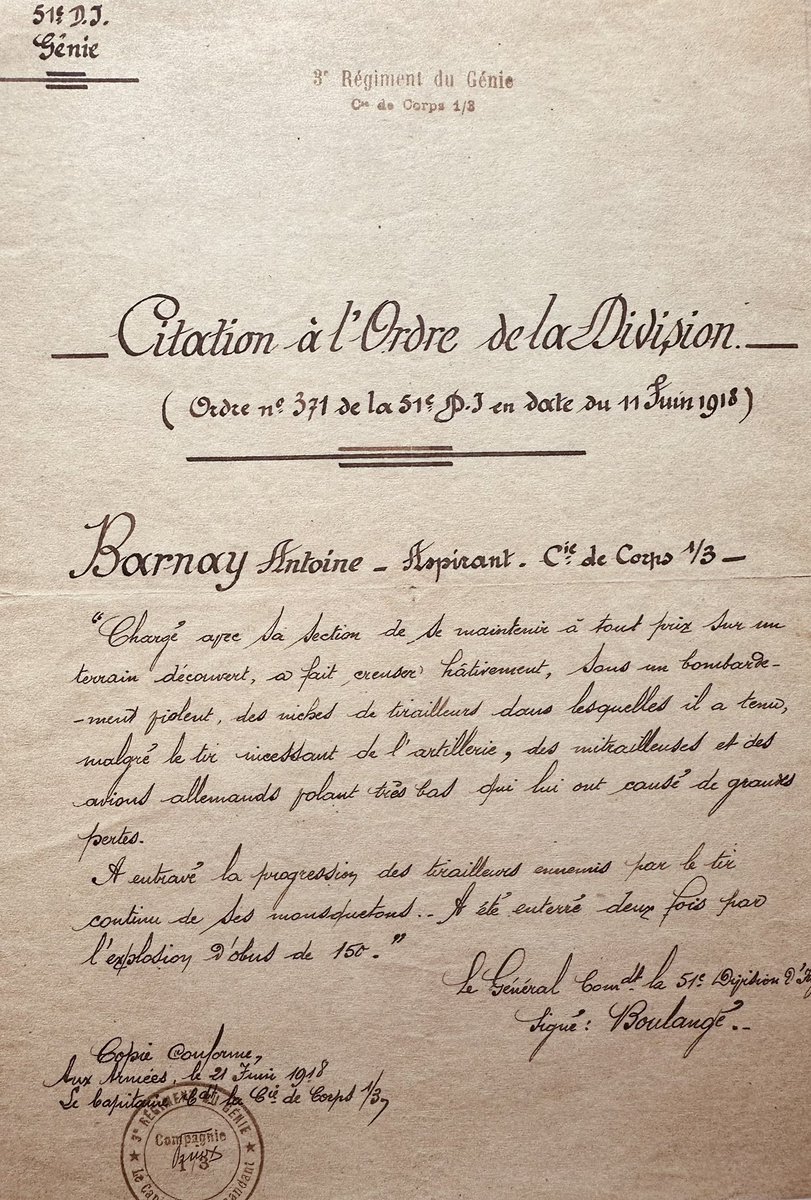 51e D.I.
Génie
3e Régiment du Génie
Cie de Corps 1/3
Citation à l'Ordre de la Division.
( Ordre n° 371 de la 51e D.I en date du 11 Juin 1918 )
Barnay Antoine - Aspirant - Cie de Corps 1/3 -
"Chargé avec sa section de se maintenir à tout prix sur un
terrain découvert, a fait creuser hâtivement, sous un bombarde-
-ment violent, des niches de tirailleurs dans lesquelles il a tenu,
malgré le tir incessant de l'artillerie, des mitrailleuses et des
avions allemands volant très bas qui lui ont causé de grandes
pertes.
A entravé la progression des tirailleurs ennemis par le tir
continu de ses mousquetons.. A été enterré deux fois par
l'explosion d'obus de 150."
Le Général Comdt la 51e Division d'I
Signé : Boulangé..
Copie Conforme,
Aux Armées, le 21 Juin 1918
Le Capitaine Cdt la Cie de Corps 1/3,
3e RÉGIMENT DU GÉNIE
Compagnie
1/3